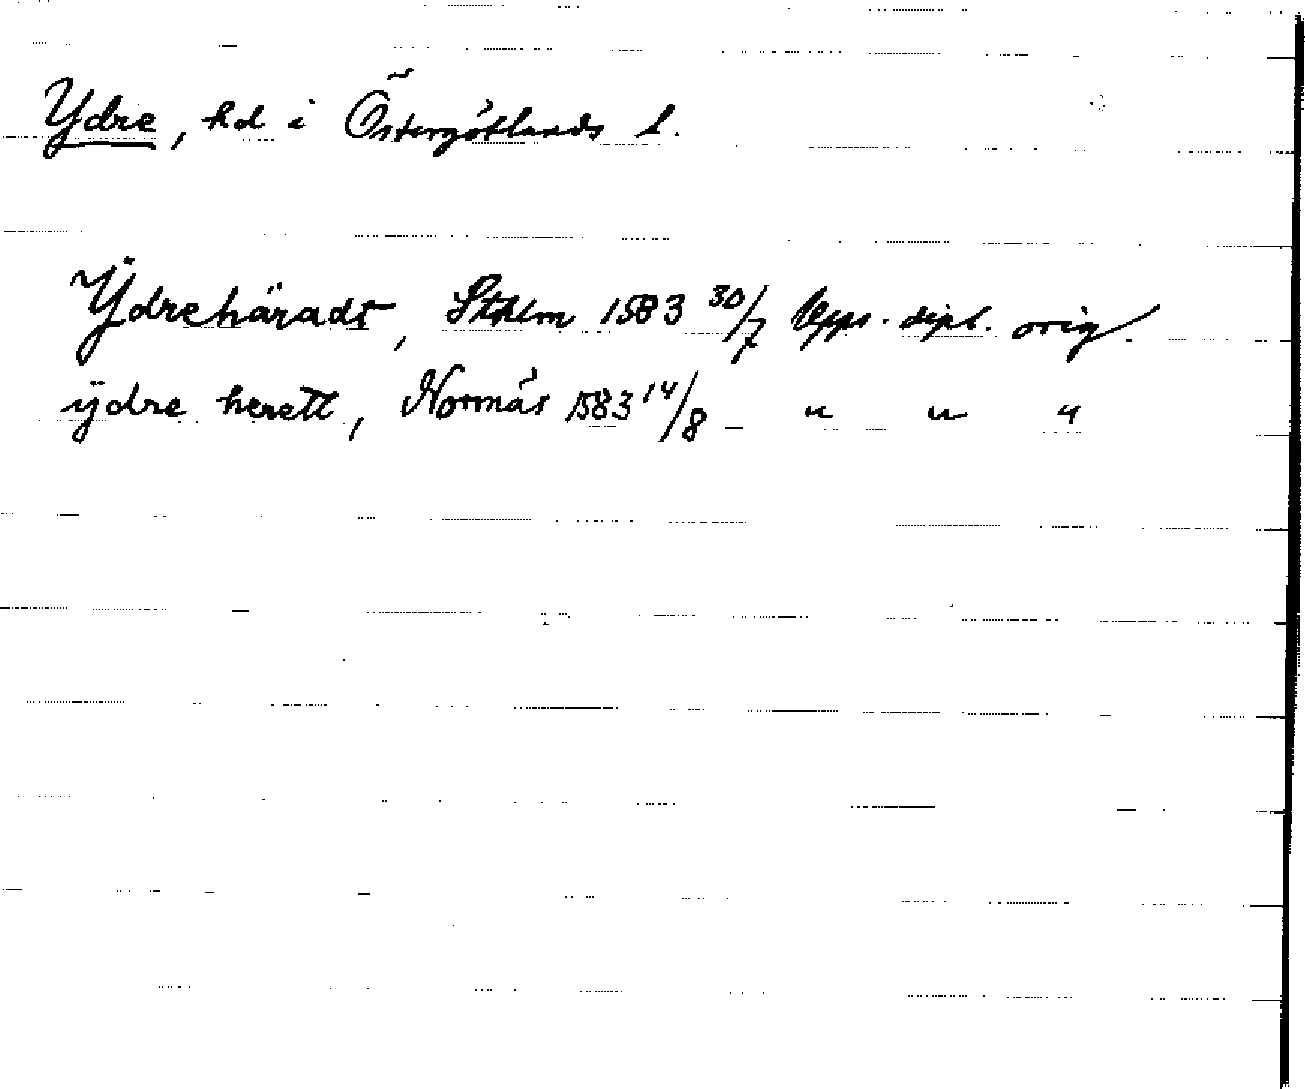 Ydre, hd i Östergötlands l.
Ÿdrehäradt, Sthlm 1583 30/7 Upps. dipl. orig.
ÿdre herett, Normás 1583 14/8 – " " "